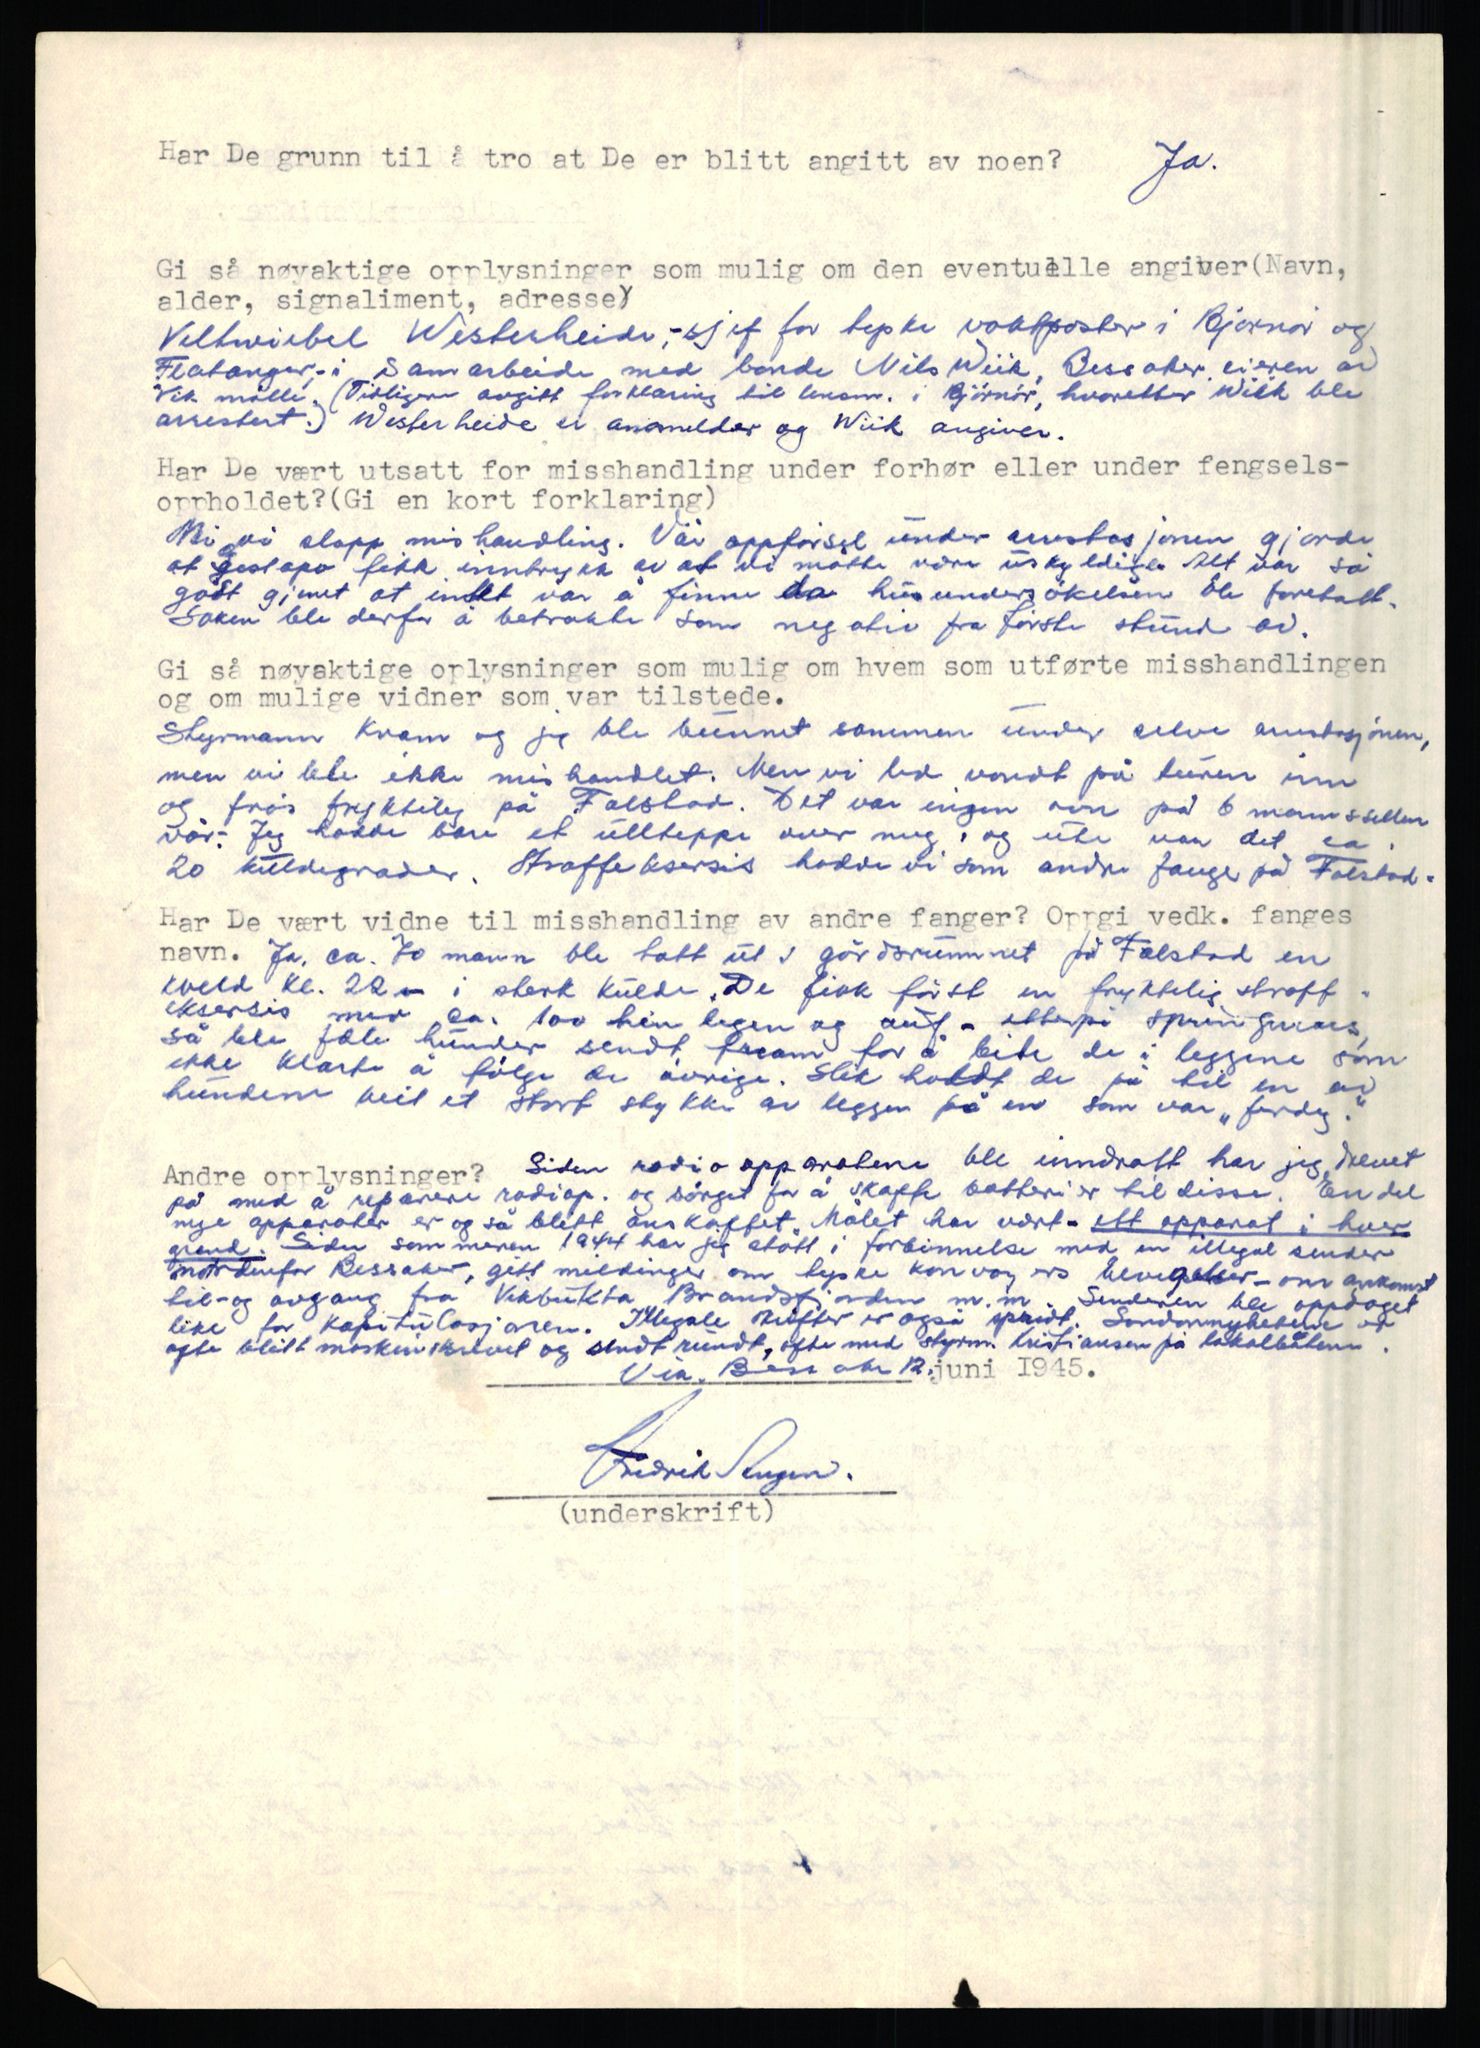 Har De grunn til å tro at De er blitt angitt av noen? Ja.
Gi så nøyaktige opplysninger som mulig om den eventuelle angiver(Navn,
alder, signaliment, adresse)
Veltwiebel Westerheide, - sjef for tyske vaktposter i Bjørnør og
Flatanger, - i samarbeide med bonde Nils Wiik, Bessaker, eieren av
Vik mölle. (Tidligere avgitt forklaring til lensm. i Björnör, hvoretter Wiik ble
arrestert.) Westerheide er anmelder og Wiik angiver.
Har De vært utsatt for misshandling under forhør eller under fengsels-
oppholdet?(Gi en kort forklaring)
Nei vi slapp mishandling. Vår oppførsel under arrestasjonen gjorde
at gestapo fikk inntrykk av at vi måtte være uskyldige. Alt var så
godt gjemt at intet var å finne da husundersökelsen ble foretatt.
Saken ble derfor å betrakte som negativ fra første stund av.
Gi så nøyaktige oplysninger som mulig om hvem som utførte misshandlingen
og om mulige vidner som var tilstede.
Styrmann Kvam og jeg ble bunnet sammen under selve arrestasjonen,
men vi ble ikke mishandlet. Men vi led vondt på turen inn
og frös fryktelig på Falstad. Det var ingen ovn på 6 mannscellen
vår. Jeg hadde bare et ullteppe over meg, og ute var det ca.
20 kuldegrader. Straffeksersis hadde vi som andre fanger på Falstad.
Har De vært vidne til misshandling av andre fanger? Oppgi vedk. fanges
navn. Ja, ca. 70 mann ble tatt ut i gårdsrummet på Falstad en
kveld kl. 22 - i sterk kulde. De fikk først en fryktelig straff-
eksersis med ca. 100 hinlegen og auf - etterpå springmars,
så ble fæle hunder sendt fram for å bite de i leggene som
ikke klarte å følge de øvrige. Slik holdt de på til en av
hundene beit et stort stykke av leggen på en som var „ferdig."
Andre opplysninger? Siden radioapparatene ble inndratt har jeg drevet
på med å reparere radioap. og sörget for å skaffe batterier til disse. En del
nye apparater er og så blitt anskaffet. Målet har vært - ett apparat i hver
grend. Siden sommeren 1944 har jeg stått i forbinnelse med en illegal sender
nordenfor Bessaker, gitt meldinger om tyske konvoyers bevegelser - om ankomst
til - og avgang fra Vikbukta Brandsfjorden m.m. Senderen ble oppdaget
like før kapitulasjonen. Illegale skrifter er også spredt. Londonnyhetene er
ofte blitt maskinskrevet og sendt rundt, ofte med styrm. Kristiansen på lokalbåtene.
Vik. Bessaker 12. juni 1945.
Fredrik
(underskrift)